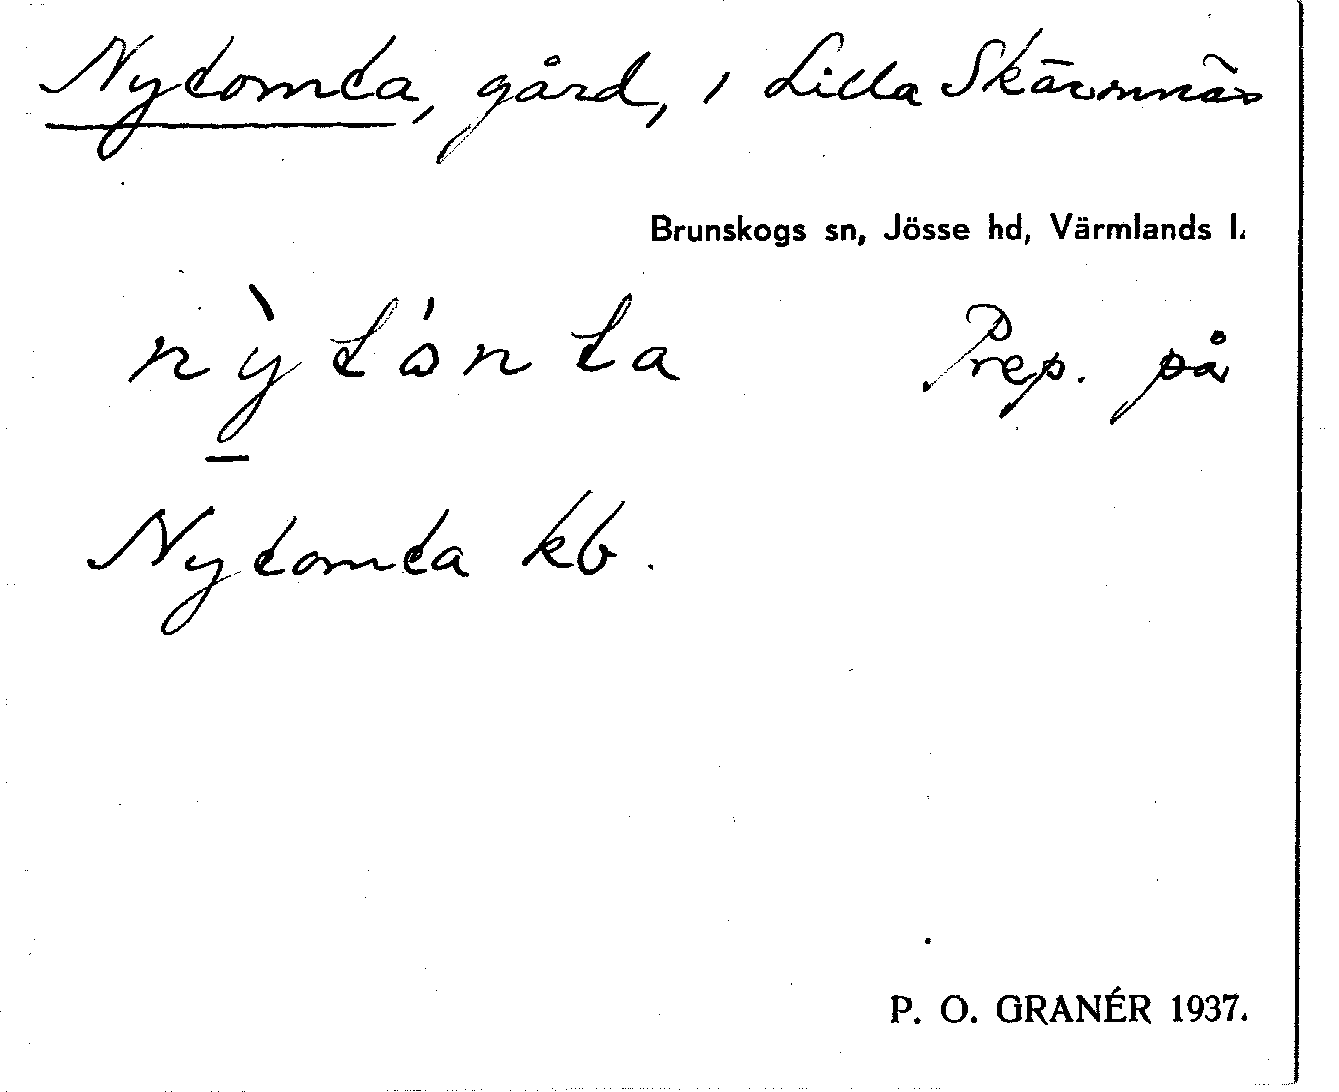 Nytomta, gård, i Lilla Skärmnäs
Brunskogs sn, Jösse hd, Värmlands l.
Prep. på
Nytomta kb.
P. O. GRANÉR 1937.